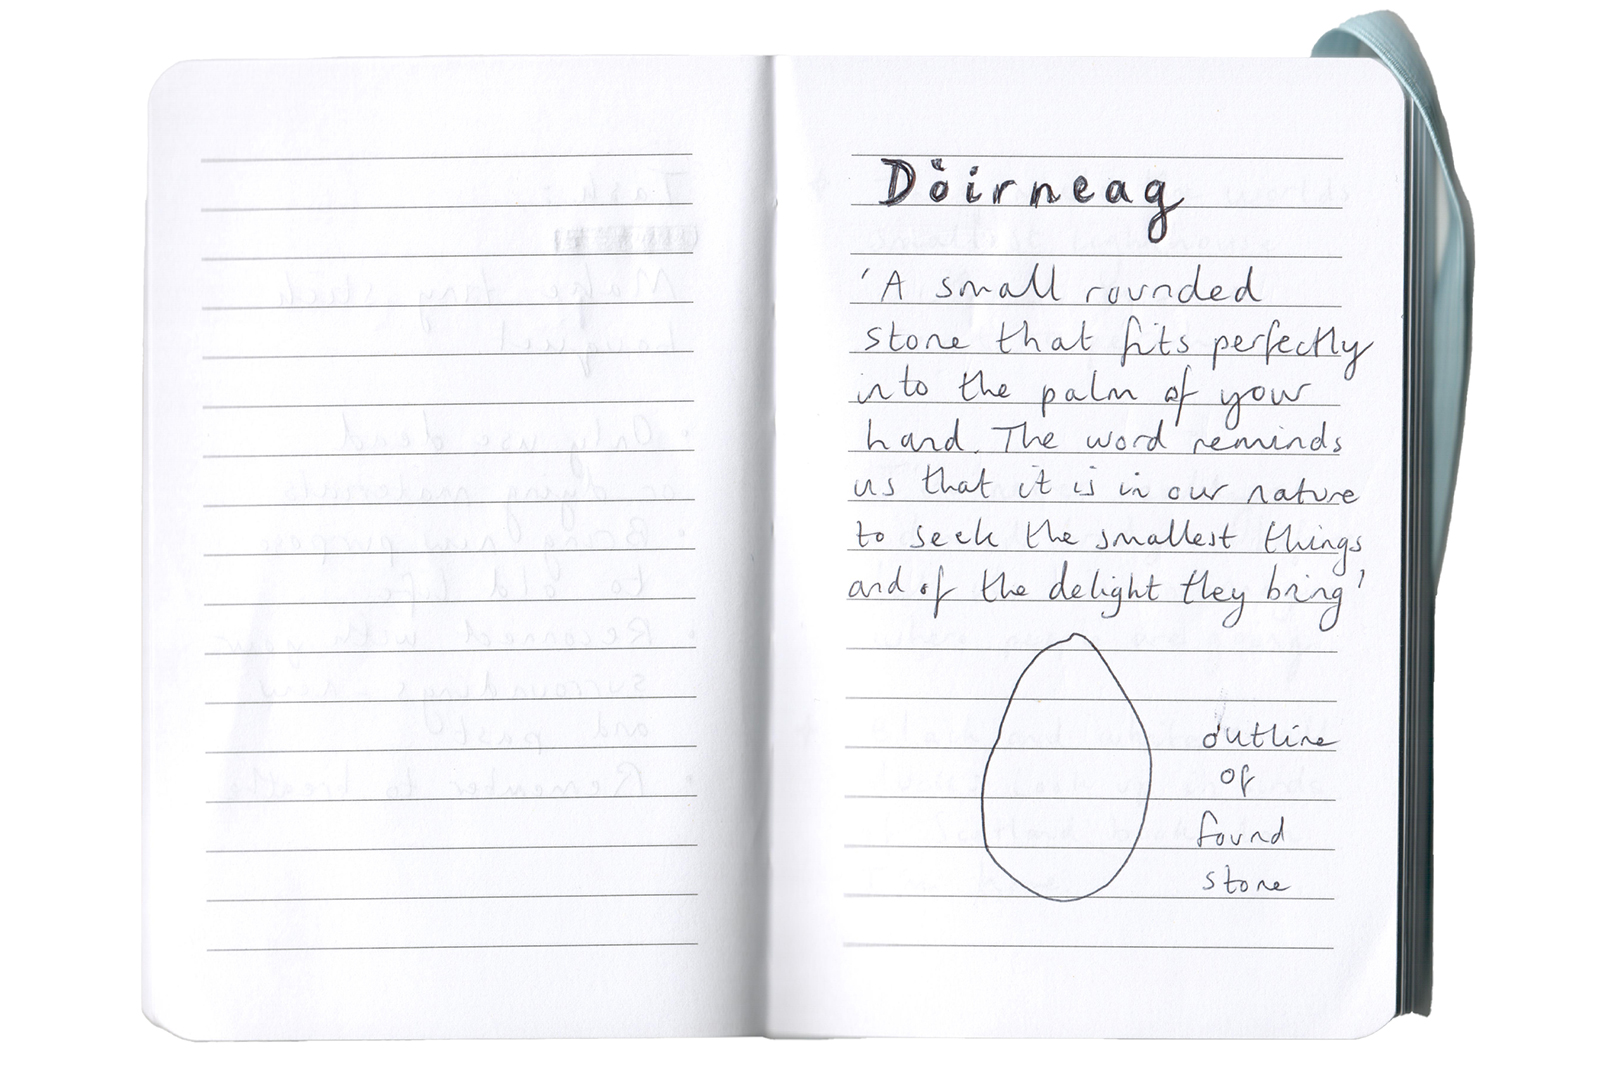 Dòirneag
'A small rounded
stone that fits perfectly
into the palm of your
hand. The word reminds
us that it is in our nature
to seek the smallest things
and of the delight they bring'
outline
of
found
stone